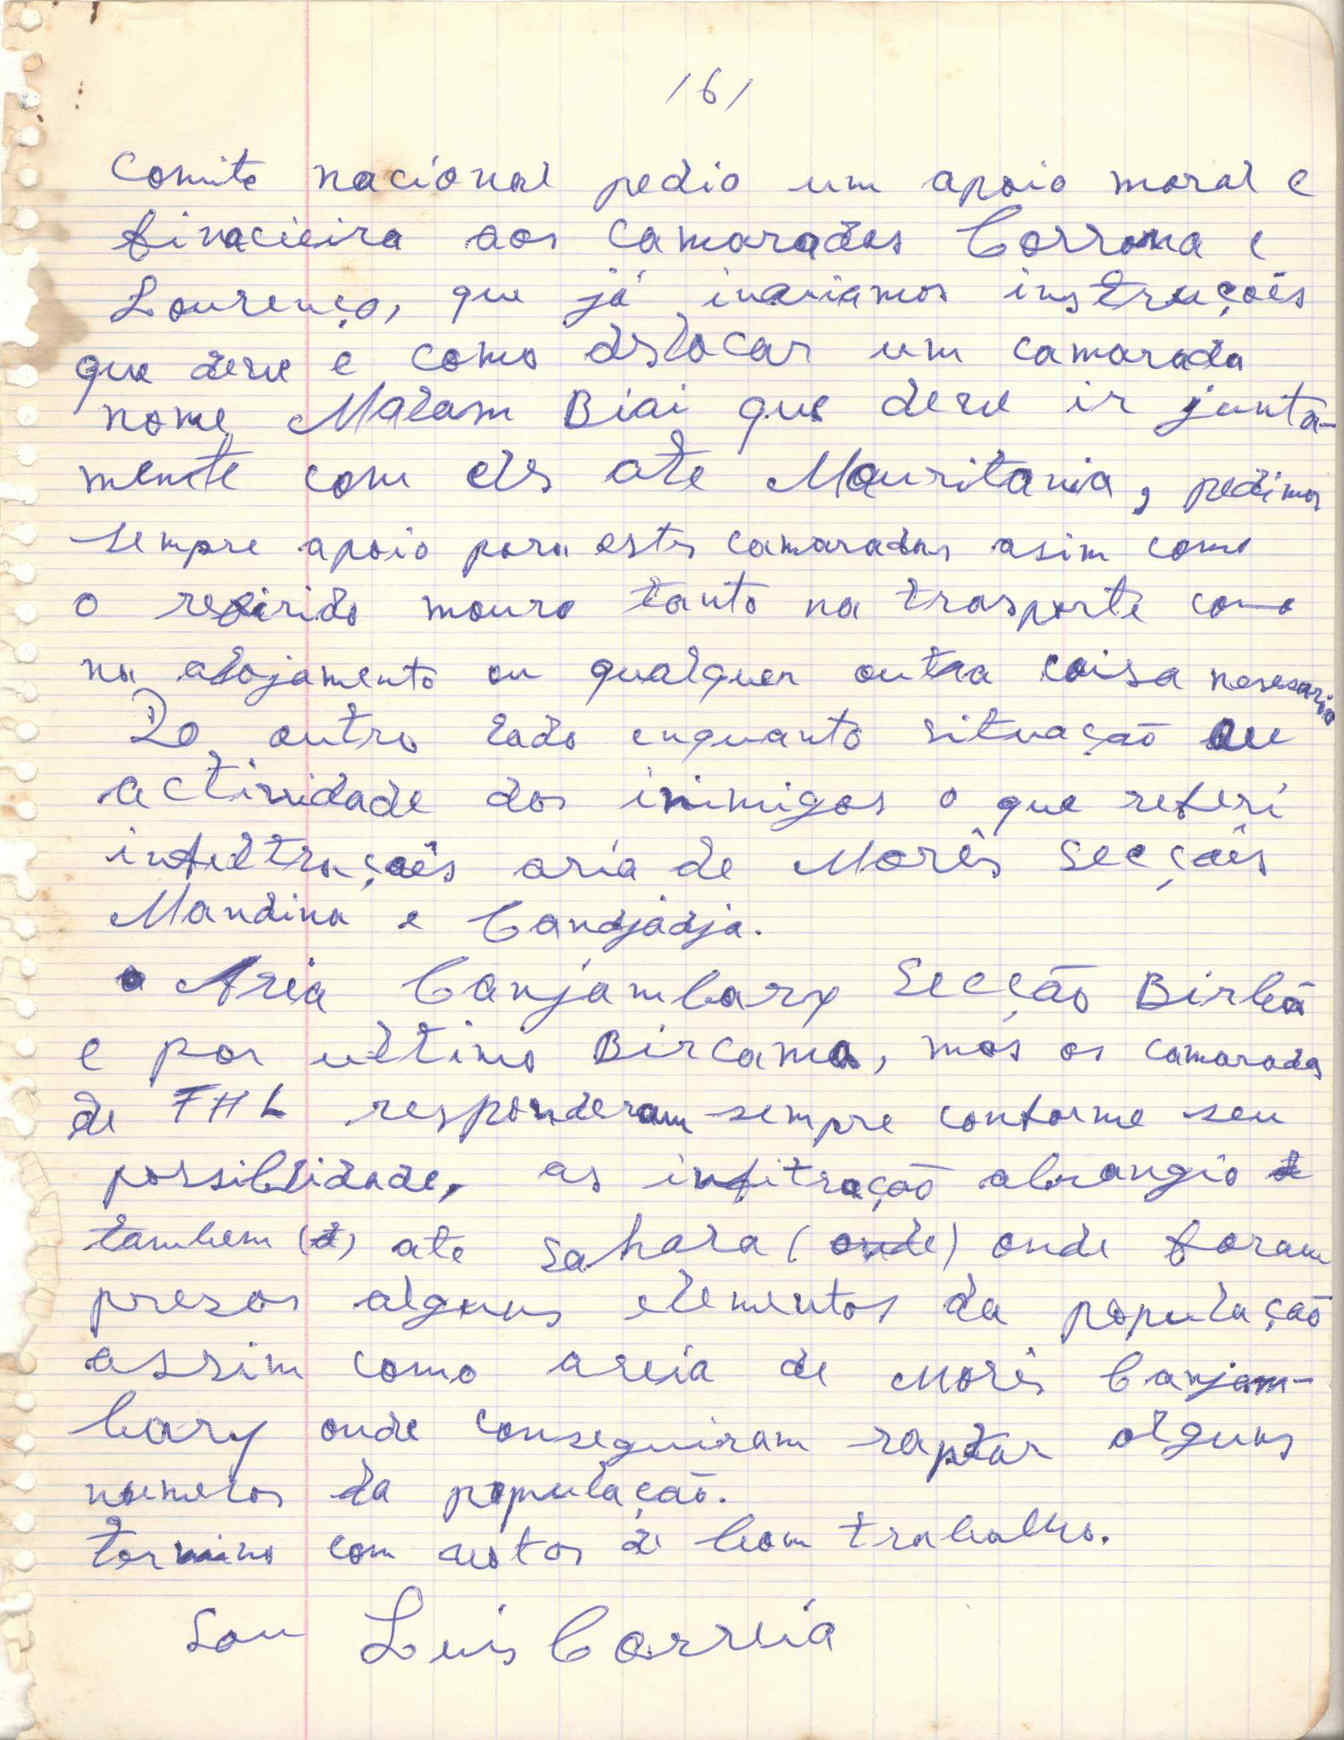 /6/
Comite nacional pedio um apoio moral e
finacieira aos camaradas Corroma e
Lourenço, que já inaviamos instruçoês
que deve e como deslocar um camarada
nome Malam Biai que deve ir junta-
mente com eles ate Mauritania, pedimos
sempre apoio para estes camaradas asim como
o refirido mouro tanto na trasporte como
na alojamento ou qualquer outra coisa nesesario
Do outro lado enquanto situação ou
actividade dos inimigos o que referi
infiltraçoês aria de Morês Secçoês
Mandina e Candjadja.
Aria Canjambary Secção Birbã
e por ultimo Bircama, mas os camaradas
de FHL responderam sempre conforme seu
possiblidade, as infitração abrangio
tambem (d) ate Sahara (onde) onde foram
presos alguns elementos da população
assim como areia de Morês Canjam-
bary onde conseguiram raptar alguns
numeros da população.
termino com votos de bom trabalho.
Sou Luis Correia